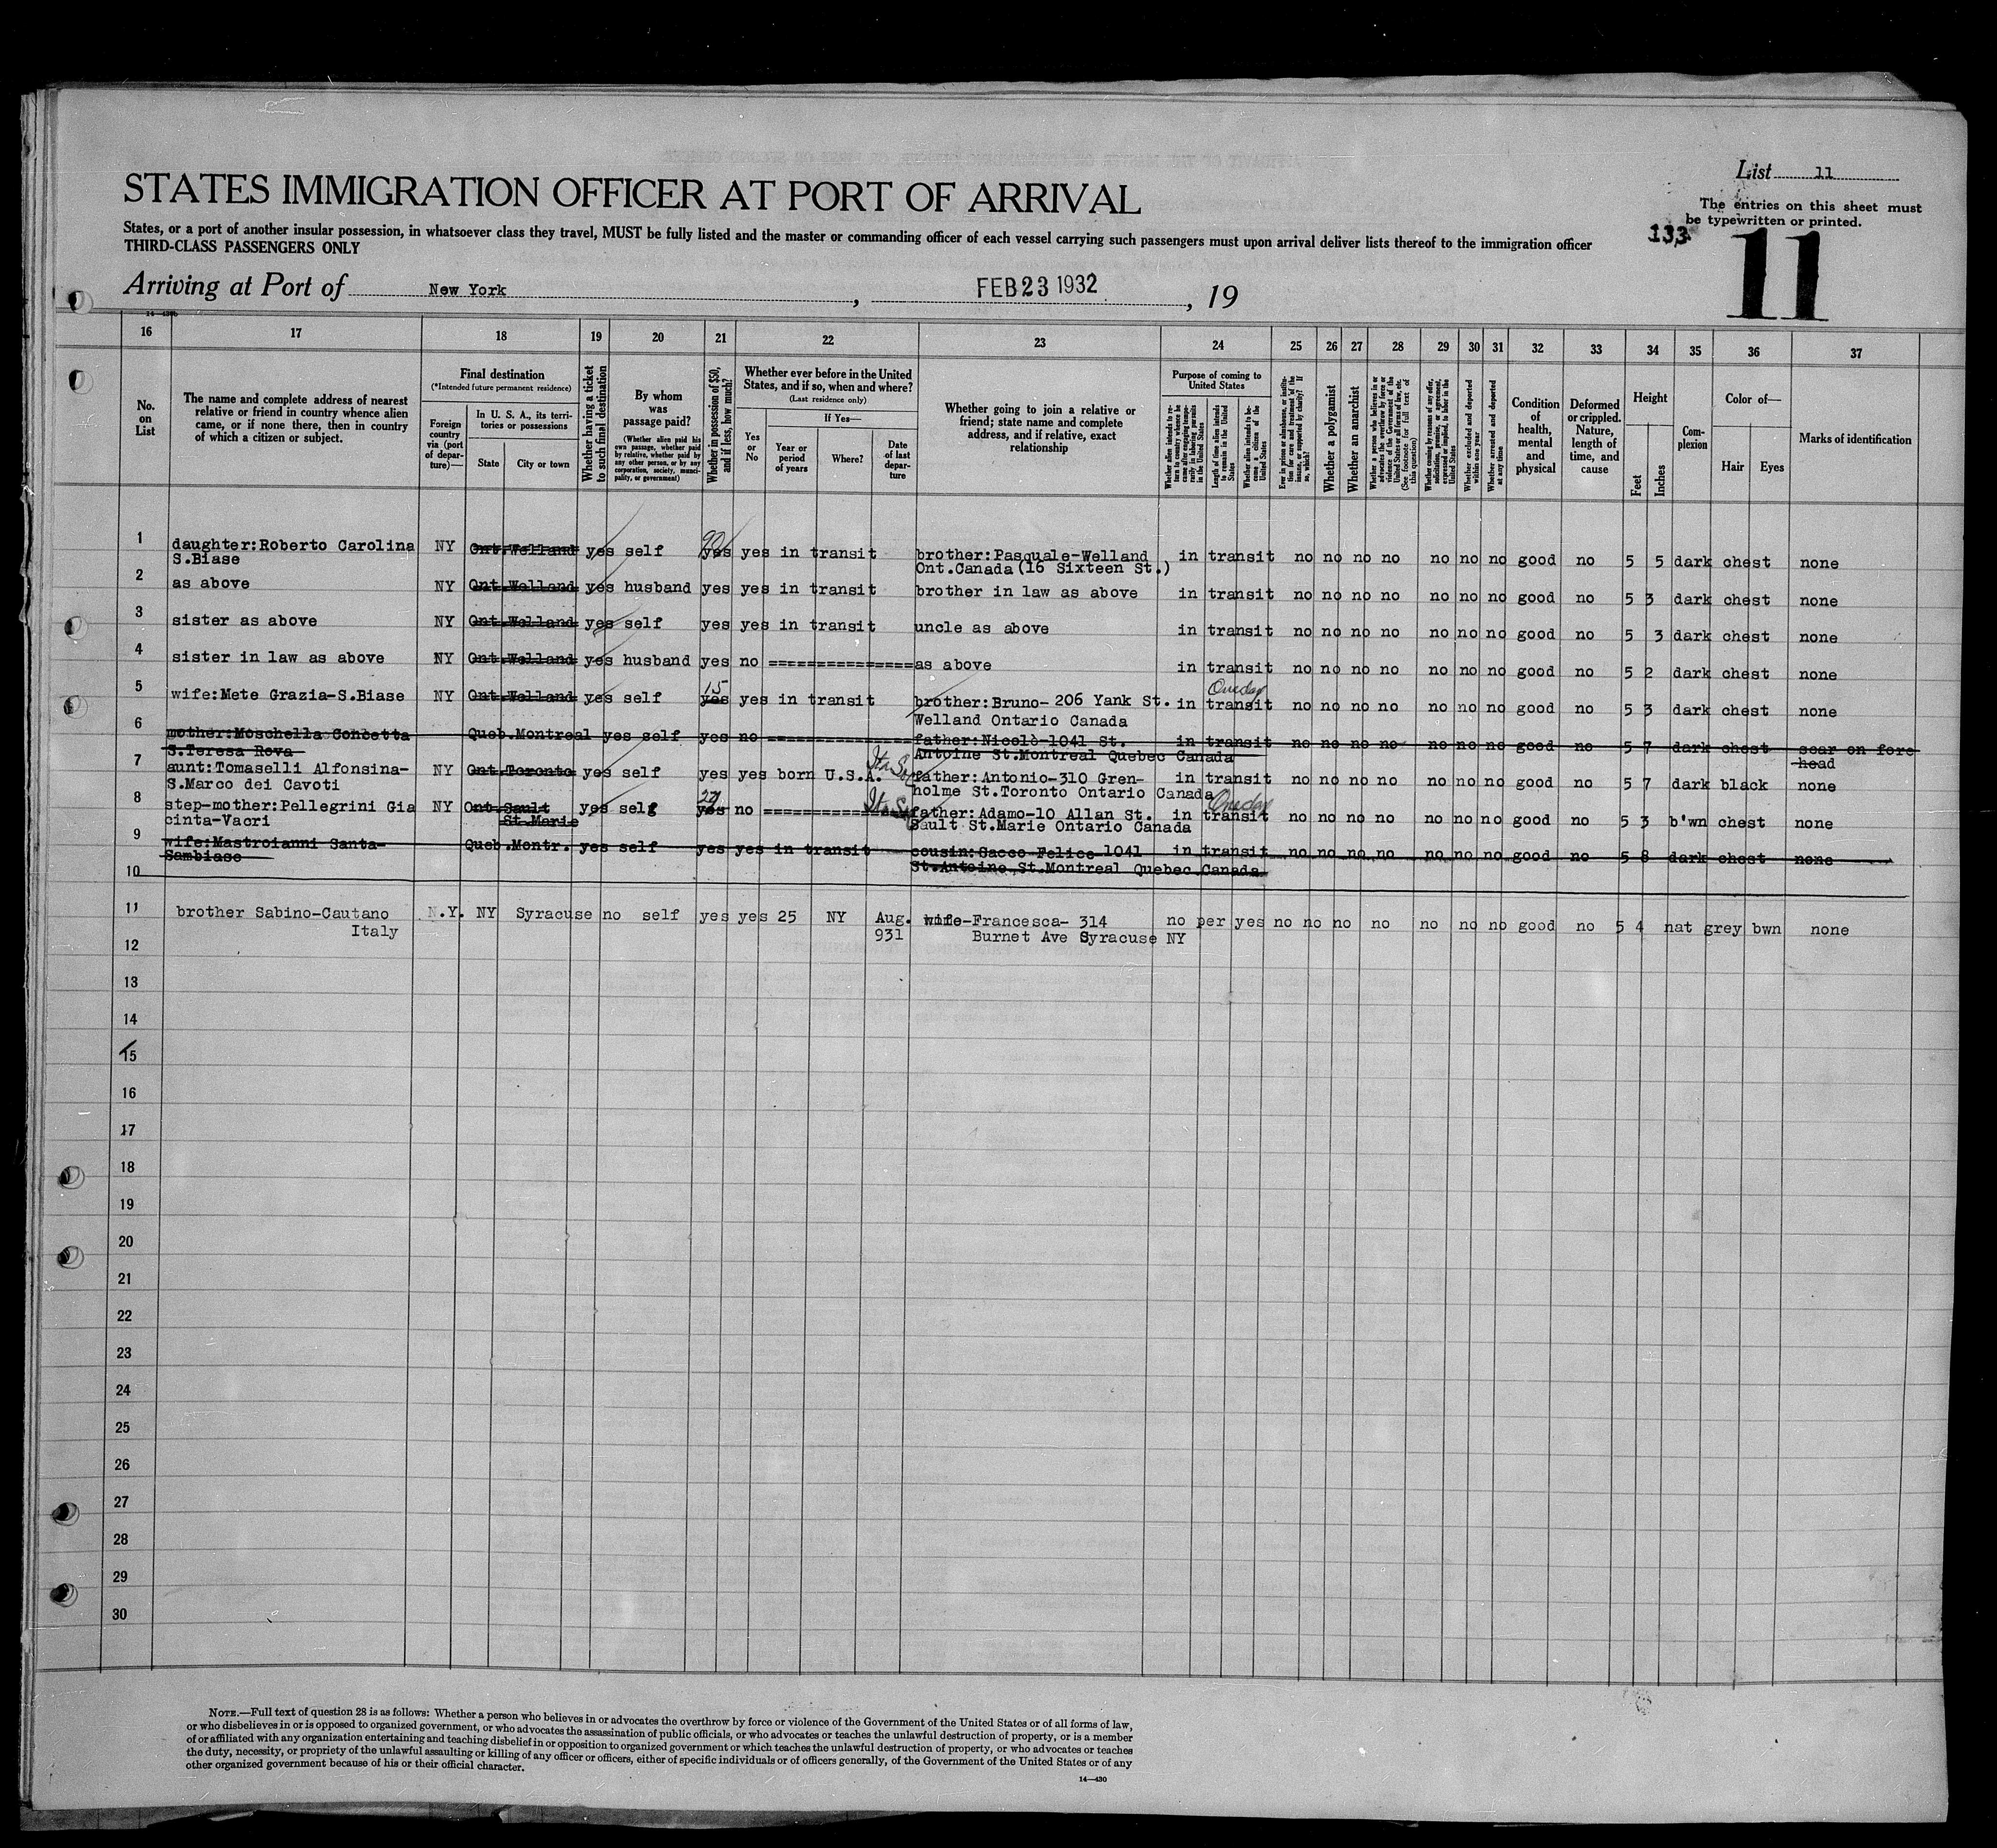 List 11
STATES IMMIGRATION OFFICER AT PORT OF ARRIVAL
The entries on this sheet must
be typewritten or printed.
States, or a port of another insular possession, in whatsoever class they travel, MUST be fully listed and the master or commanding officer of each vessel carrying such passengers must upon arrival deliver lists thereof to the immigration officer
THIRD-CLASS PASSENGERS ONLY
133
11
Arriving at Port of New York, FEB 23 1932, 19
16 17 18 19 20 21 22 23 24 25 26 27 28 29 30 31 32 33 34 35 36 37
No. on List
The name and complete address of nearest
relative or friend in country whence alien
came, or if none there, then in country
of which a citizen or subject.
Final destination
(*Intended future permanent residence)
Foreign country via (port of departure)—
In U. S. A., its territories or possessions
State
City or town
Whether having a ticket to such final destination
By whom was passage paid?
(Whether alien paid his own passage, whether paid by relative, whether paid by any other person, or by any corporation, society, municipality, or government)
Whether in possession of $50, and if less, how much?
Whether ever before in the United
States, and if so, when and where?
(Last residence only)
Yes or No
If Yes—
Year or period of years
Where?
Date of last departure
Whether going to join a relative or
friend; state name and complete
address, and if relative, exact
relationship
Purpose of coming to United States
Whether alien intends to return to country whence he came after engaging temporarily in laboring pursuits in the United States
Length of time alien intends to remain in the United States
Whether alien intends to become a citizen of the United States
Ever in prison or almshouse, or institution for care and treatment of the insane, or supported by charity? If so, which?
Whether a polygamist
Whether an anarchist
Whether a person who believes in or advocates the overthrow by force or violence of the Government of the United States or all forms of law, etc. (See footnote for full text of this question)
Whether coming by reason of any offer, solicitation, promise, or agreement, expressed or implied, to labor in the United States
Whether excluded and deported within one year
Whether arrested and deported at any time
Condition of health, mental and physical
Deformed or crippled. Nature, length of time, and cause
Height
Feet
Inches
Complexion
Color of—
Hair
Eyes
Marks of identification
1 daughter:Roberto Carolina NY Ont.Welland yes self yes 90 yes in transit brother:Pasquale-Welland in transit no no no no no no no good no 5 5 dark chest none
S.Biase Ont.Canada(16 Sixteen St.)
2 as above NY Ont.Welland yes husband yes yes in transit brother in law as above in transit no no no no no no no good no 5 3 dark chest none
3 sister as above NY Ont.Welland yes self yes yes in transit uncle as above in transit no no no no no no no good no 5 3 dark chest none
4 sister in law as above NY Ont.Welland yes husband yes no =============== as above in transit no no no no no no no good no 5 2 dark chest none
5 wife:Mete Grazia-S.Biase NY Ont.Welland yes self yes 15 yes in transit brother:Bruno-206 Yank St. in transit One day no no no no no no no good no 5 3 dark chest none
Welland Ontario Canada
6 mother:Moschella Concetta Queb.Montreal yes self yes no =============== father:Nicolè-1041 St. in transit no no no no no no no good no 5 7 dark chest scar on fore
S.Teresa Rova Antoine St.Montreal Quebec Canada head
7 aunt:Tomaselli Alfonsina- NY Ont.Toronto yes self yes yes born U.S.A. father:Antonio-310 Gren- in transit no no no no no no no good no 5 7 dark black none
S.Marco dei Cavoti holme St.Toronto Ontario Canada
8 step-mother:Pellegrini Gia NY Ont.Sault yes self yes no =============== father:Adamo-10 Allan St. in transit One day no no no no no no no good no 5 3 b'wn chest none
cinta-Vacri St.Marie Sault St.Marie Ontario Canada
9 wife:Mastroianni Santa- Queb.Montr. yes self yes yes in transit cousin:Sacco Felice 1041 in transit no no no no no no no good no 5 8 dark chest none
Sambiase St.Antoine,St.Montreal Quebec Canada
10
11 brother Sabino-Cautano N.Y. NY Syracuse no self yes yes 25 NY Aug. wife-Francesca- 314 no per yes no no no no no no no good no 5 4 nat grey bwn none
Italy 931 Burnet Ave Syracuse NY
12
13
14
15
16
17
18
19
20
21
22
23
24
25
26
27
28
29
30
NOTE.—Full text of question 28 is as follows: Whether a person who believes in or advocates the overthrow by force or violence of the Government of the United States or of all forms of law,
or who disbelieves in or is opposed to organized government, or who advocates the assassination of public officials, or who advocates or teaches the unlawful destruction of property, or is a member
of or affiliated with any organization entertaining and teaching disbelief in or opposition to organized government or which teaches the unlawful destruction of property, or who advocates or teaches
the duty, necessity, or propriety of the unlawful assaulting or killing of any officer or officers, either of specific individuals or of officers generally, of the Government of the United States or of any
other organized government because of his or their official character.
14—430